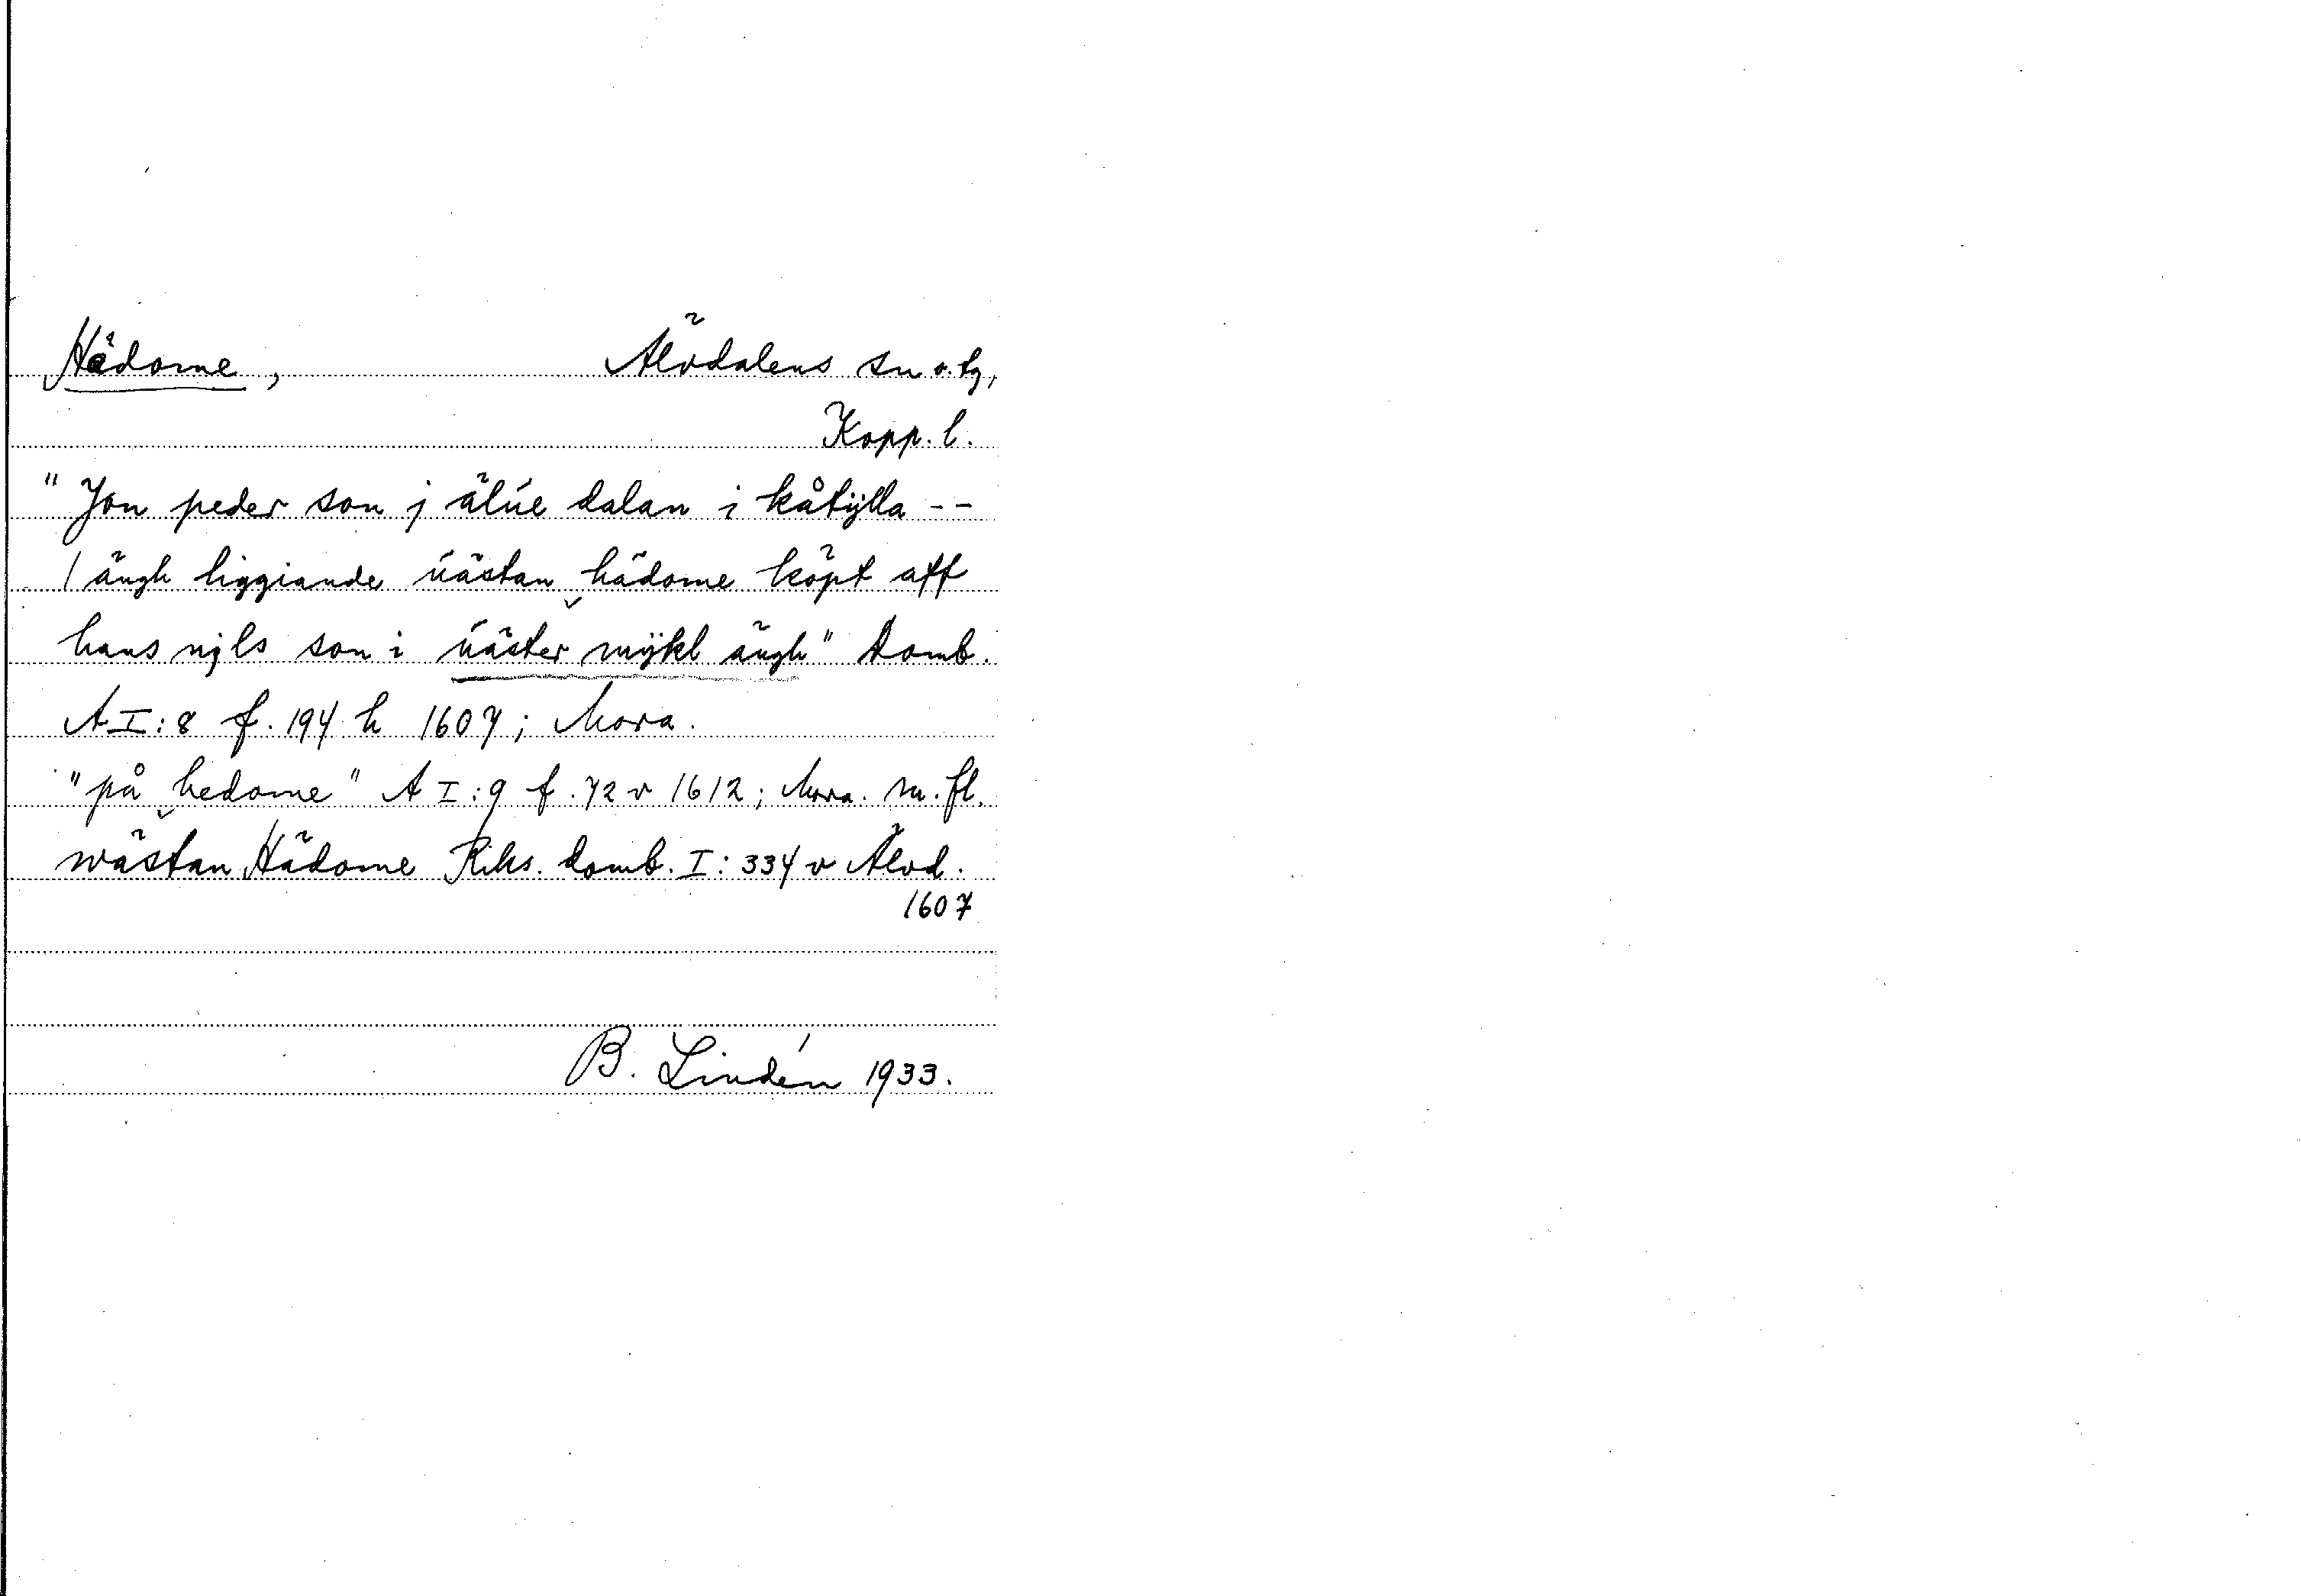 Hädome, Älvdalens sn o. tg,
Kopp. l.
"Jon peder son j älúe dalan i kåtÿlla --
1 ängh liggiande úästan hädome köpt aff
hans nils son i úäster mÿkl ängh" Domb.
A I:8 f. 194 h 1607; Mora.
"på hedome" A I:9 f. 72 v 1612; Mora. m. fl.
wästan Hädome Riks. domb. I: 334 v Älvd.
1607
B. Lindén 1933.